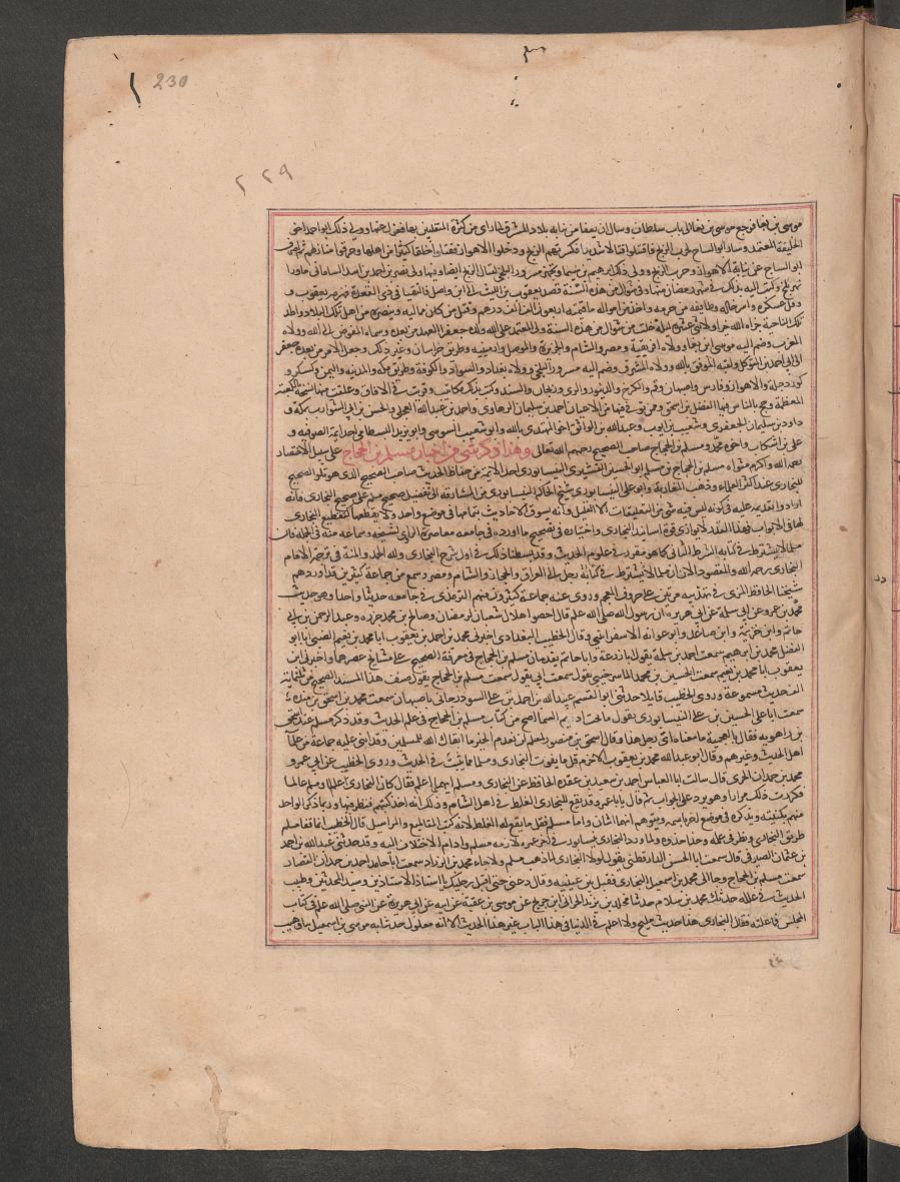 230
٢٢٩
موسى بن بغا فرجع موسى بن بغا الى باب سلطان وسال ان يعفا من نيابة بلاد المشرق لما راى من كثرة المتغلبين بها فعفى منها وولى ذلك ابو احمد اخى
الخليفة المعتمد وسار ابو الساج لحرب الزنج فاقتتلوا قتالا شديدا فكسرتهم الزنج ودخلوا الاهواز فقتلوا خلقا كثيرا من اهلها وحرقوا منازلهم ثم صرف
ابو الساج عن نيابة الاهواز وحرب الزنج وولى ذلك ابرهيم بن سيما وتجهز مسرور البلخى لقتال الزنج ايضا وفيها ولى نصر بن احمد بن اسد السامانى ماورا
نهر بلخ وكتب اليه بذلك فى شهر رمضان منها وفى شوال من هذه السنة قصد يعقوب بن الليث الى ابن واصل فالتقيا فى ذى القعدة فهزمه يعقوب و
وفل عسكره واسر خاله وطايفة من حرمه واخذ من امواله ما قيمته اربعون الف الف درهم وقتل من كان يماليه وينصره من اهل تلك البلاد واطد
تلك الناحية جزاه الله خيرا ولاثنى عشرة ليلة خلت من شوال من هذه السنة ولى المعتمد على الله ولده جعفر العهد من بعده وسماه المفوض الى الله وولاه
المغرب وضم اليه موسى ابن بغا وولاه افريقية ومصر والشام والجزيرة والموصل وارمينيه وطريق خراسان وغير ذلك وجعل الامر من بعد جعفر
الى ابى احمد بن المتوكل ولقبه الموفق بالله وولاه المشرق وضم اليه مسرور البلخى وولاه بغداد والسواد والكوفة وطريق مكه والمدينه واليمن وكسكر و
كور دجلة والاهواز وفارس واصبهان وقم والكرج والدينور والرى وزنجان والسند وكتب بذلك مكاتب وقريت فى الافاق وعلقت منها نسخة بالكعبة
المعظمة وحج بالناس فيها الفضل بن اسحق وممن توفى فيها من الاعيان احمد بن سليمان الرهاوى واحمد بن عبدالله العجلى والحسن بن ابى الشوارب بمكة و
داود بن سليمان الجعفرى وشعيب بن ايوب وعبدالله بن الواثق اخى المهتدى بالله وابو شعيب السوسى وابو يزيد البسطامى احد ايمة الصوفيه و
على بن اشكاب واخوه محمد ومسلم بن الحجاج صاحب الصحيح رحمهم الله تعالى وهذا ذكر شى من اخبار مسلم بن الحجاج على سبيل الاختصار
رحمه الله واكرم مثواه مسلم بن الحجاج بن مسلم ابو الحسين القشيرى النيسابورى احد الايمة من حفاظ الحديث صاحب الصحيح الذى هو تلو الصحيح
للبخارى عند اكثر العلماء وذهب المغاربة وابو على النيسابورى شيخ الحاكم النيسابورى من المشارقه الى تفضيل صحيح مسلم على صحيح البخارى فانه
ارادوا تقديمه عليه فى كونه ليس فيه شى من التعليقات الا القليل وانه يسوق الاحاديث بتمامها فى موضع واحد ولا يقطعها كتقطيع البخارى
لها فى الابواب فهذا القدر لا يوازى قوة اسانيد البخارى واختياره فى تصحيح ما اورده فى جامعه معاصرة الراوى لشيخه وسماعه منه فى الجملة فان
مسلما لا يشترط فى كتابه الشرط الثانى كما هو مقرر فى علوم الحديث وقد بسطنا ذلك فى اول شرح البخارى ولله الحمد والمنة فى ترجمة الامام
البخارى رحمه الله والمقصود الان ان مسلما رحل الى العراق والحجاز والشام ومصر وسمع من جماعة كثيرين قد اوردهم
شيخنا الحافظ المزى فى تهذيبه مرتبين على حروف المعجم وروى عنه جماعة كثيرون منهم الترمذى فى جامعه حديثا واحدا وهو حديث
محمد بن عمرو عن ابى سلمة عن ابى هريرة ان رسول الله صلى الله علم قال احصوا هلال شعبان لرمضان وصالح بن محمد جزره وعبد الرحمن بن ابى
حاتم وابن خزيمة وابن صاعد وابو عوانة الاسفراينى وقال الخطيب البغدادى اخبرنى محمد بن احمد بن يعقوب ابا محمد بن نعيم الضبى ابا ابو
الفضل محمد بن ابرهيم سمعت احمد بن سلمة يقول رايت ابا زرعة وابا حاتم يقدمان مسلم بن الحجاج فى معرفة الصحيح على مشايخ عصرهما واخبرنى ابن
يعقوب ابا محمد بن نعيم سمعت الحسين بن محمد الماسرجسى يقول سمعت ابى يقول سمعت مسلم بن الحجاج يقول صنفت هذا المسند الصحيح من ثلثماية
الف حديث مسموعة وروى الخطيب قايلا حدثنى ابو القسم عبيدالله بن احمد بن على السوذرجانى باصبهان سمعت محمد بن اسحق بن منده
سمعت ابا على الحسين بن على النيسابورى يقول ما تحت اديم السما اصح من كتاب مسلم بن الحجاج فى علم الحديث وقد ذكر مسلم عند اسحق
بن راهويه فقال بالعجمية ما معناه اى رجل هذا وقال اسحق بن منصور لمسلم لن نعدم الخير ما ابقاك الله للمسلمين وقد اثنى عليه جماعة من علما
اهل الحديث وغيرهم وقال ابو عبدالله محمد بن يعقوب الاخرم قل ما يفوت البخارى ومسلما مما يثبت فى الحديث وروى الخطيب عن ابى عمرو
محمد بن حمدان الحيرى قال سالت ابا العباس احمد بن سعيد بن عقدة الحافظ عن البخارى ومسلم ايهما اعلم فقال كان البخارى عالما ومسلم عالما
فكررت ذلك مرارا وهو يرد على الجواب ثم قال يا ابا عمرو قد يقع للبخارى الغلط فى اهل الشام وذلك انه اخذ كتبهم فنظر فيها وربما ذكر الواحد
منهم بكنيته ويذكره فى موضع اخر باسمه ويتوهم انهما اثنان واما مسلم فقل ما يقع له الغلط لانه كتب المقاطيع والمراسيل قال الخطيب انما قفا مسلم
طريق البخارى ونظر فى علمه وحذا حذوه ولما ورد البخارى نيسابور فى اخر عمره لازمه مسلم وادام الاختلاف اليه وقد حدثنى عبيدالله بن احمد
بن عثمان الصيرفى قال سمعت ابا الحسن الدارقطنى يقول لولا البخارى لما ذهب مسلم ولا جاء محمد بن ابو زياد سمعت ابا حامد احمد بن حمدان القصار
سمعت مسلم بن الحجاج وجا الى محمد بن اسمعيل البخارى فقبل بين عينيه وقال دعنى حتى اقبل رجليك يا استاذ الاستاذين وسيد المحدثين وطبيب
الحديث فى علله حدثك محمد بن سلام حدثنا مخلد بن يزيد الحرانى ابن جريج عن موسى بن عقبة عن ابيه عن ابى هريرة عن النبى صلى الله علم فى كفارة
المجلس فما علته فقال البخارى هذا حديث مليح ولا اعلم فى الدنيا فى هذا الباب غير هذا الحديث الا انه معلول حدثنا به موسى بن اسمعيل بنا وهيب